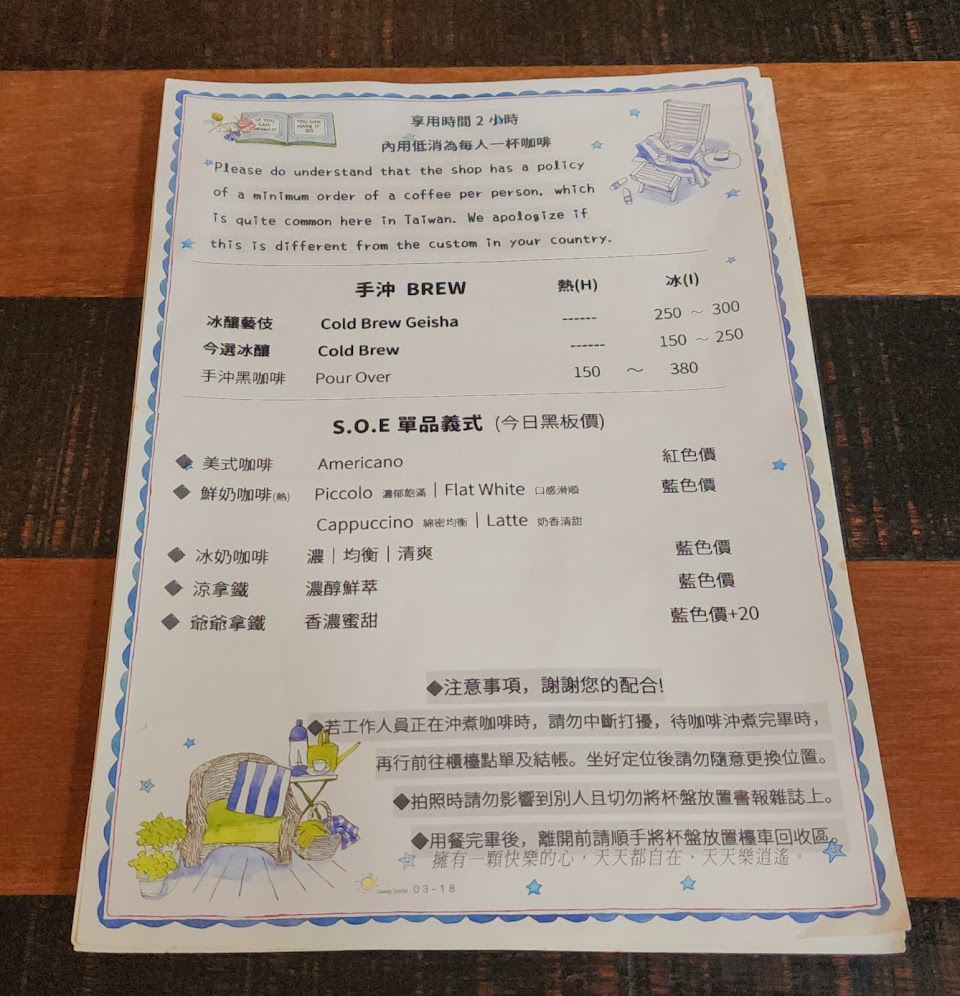 IF YOU CAN DREAM IT YOU CAN MAKE IT SO
享用時間2小時
內用低消為每人一杯咖啡
Please do understand that the shop has a policy
of a minimum order of a coffee per person, which
is quite common here in Taiwan. We apologize if
this is different from the custom in your country.
手沖 BREW 熱(H) 冰(I)
冰釀藝伎 Cold Brew Geisha ------ 250 ~ 300
今選冰釀 Cold Brew ------ 150 ~ 250
手沖黑咖啡 Pour Over 150 ~ 380
S.O.E 單品義式 (今日黑板價)
◆ 美式咖啡 Americano 紅色價
◆ 鮮奶咖啡(熱) Piccolo 濃郁飽滿 | Flat White 口感滑順 藍色價
Cappuccino 綿密均衡 | Latte 奶香清甜
◆ 冰奶咖啡 濃 | 均衡 | 清爽 藍色價
◆ 涼拿鐵 濃醇鮮萃 藍色價
◆ 爺爺拿鐵 香濃蜜甜 藍色價+20
◆注意事項，謝謝您的配合!
◆若工作人員正在沖煮咖啡時，請勿中斷打擾，待咖啡沖煮完畢時，
再行前往櫃檯點單及結帳。坐好定位後請勿隨意更換位置。
◆拍照時請勿影響到別人且切勿將杯盤放置書報雜誌上。
◆用餐完畢後，離開前請順手將杯盤放置檯車回收區。
擁有一顆快樂的心，天天都自在、天天樂逍遙。
Sunny Smile 03-18